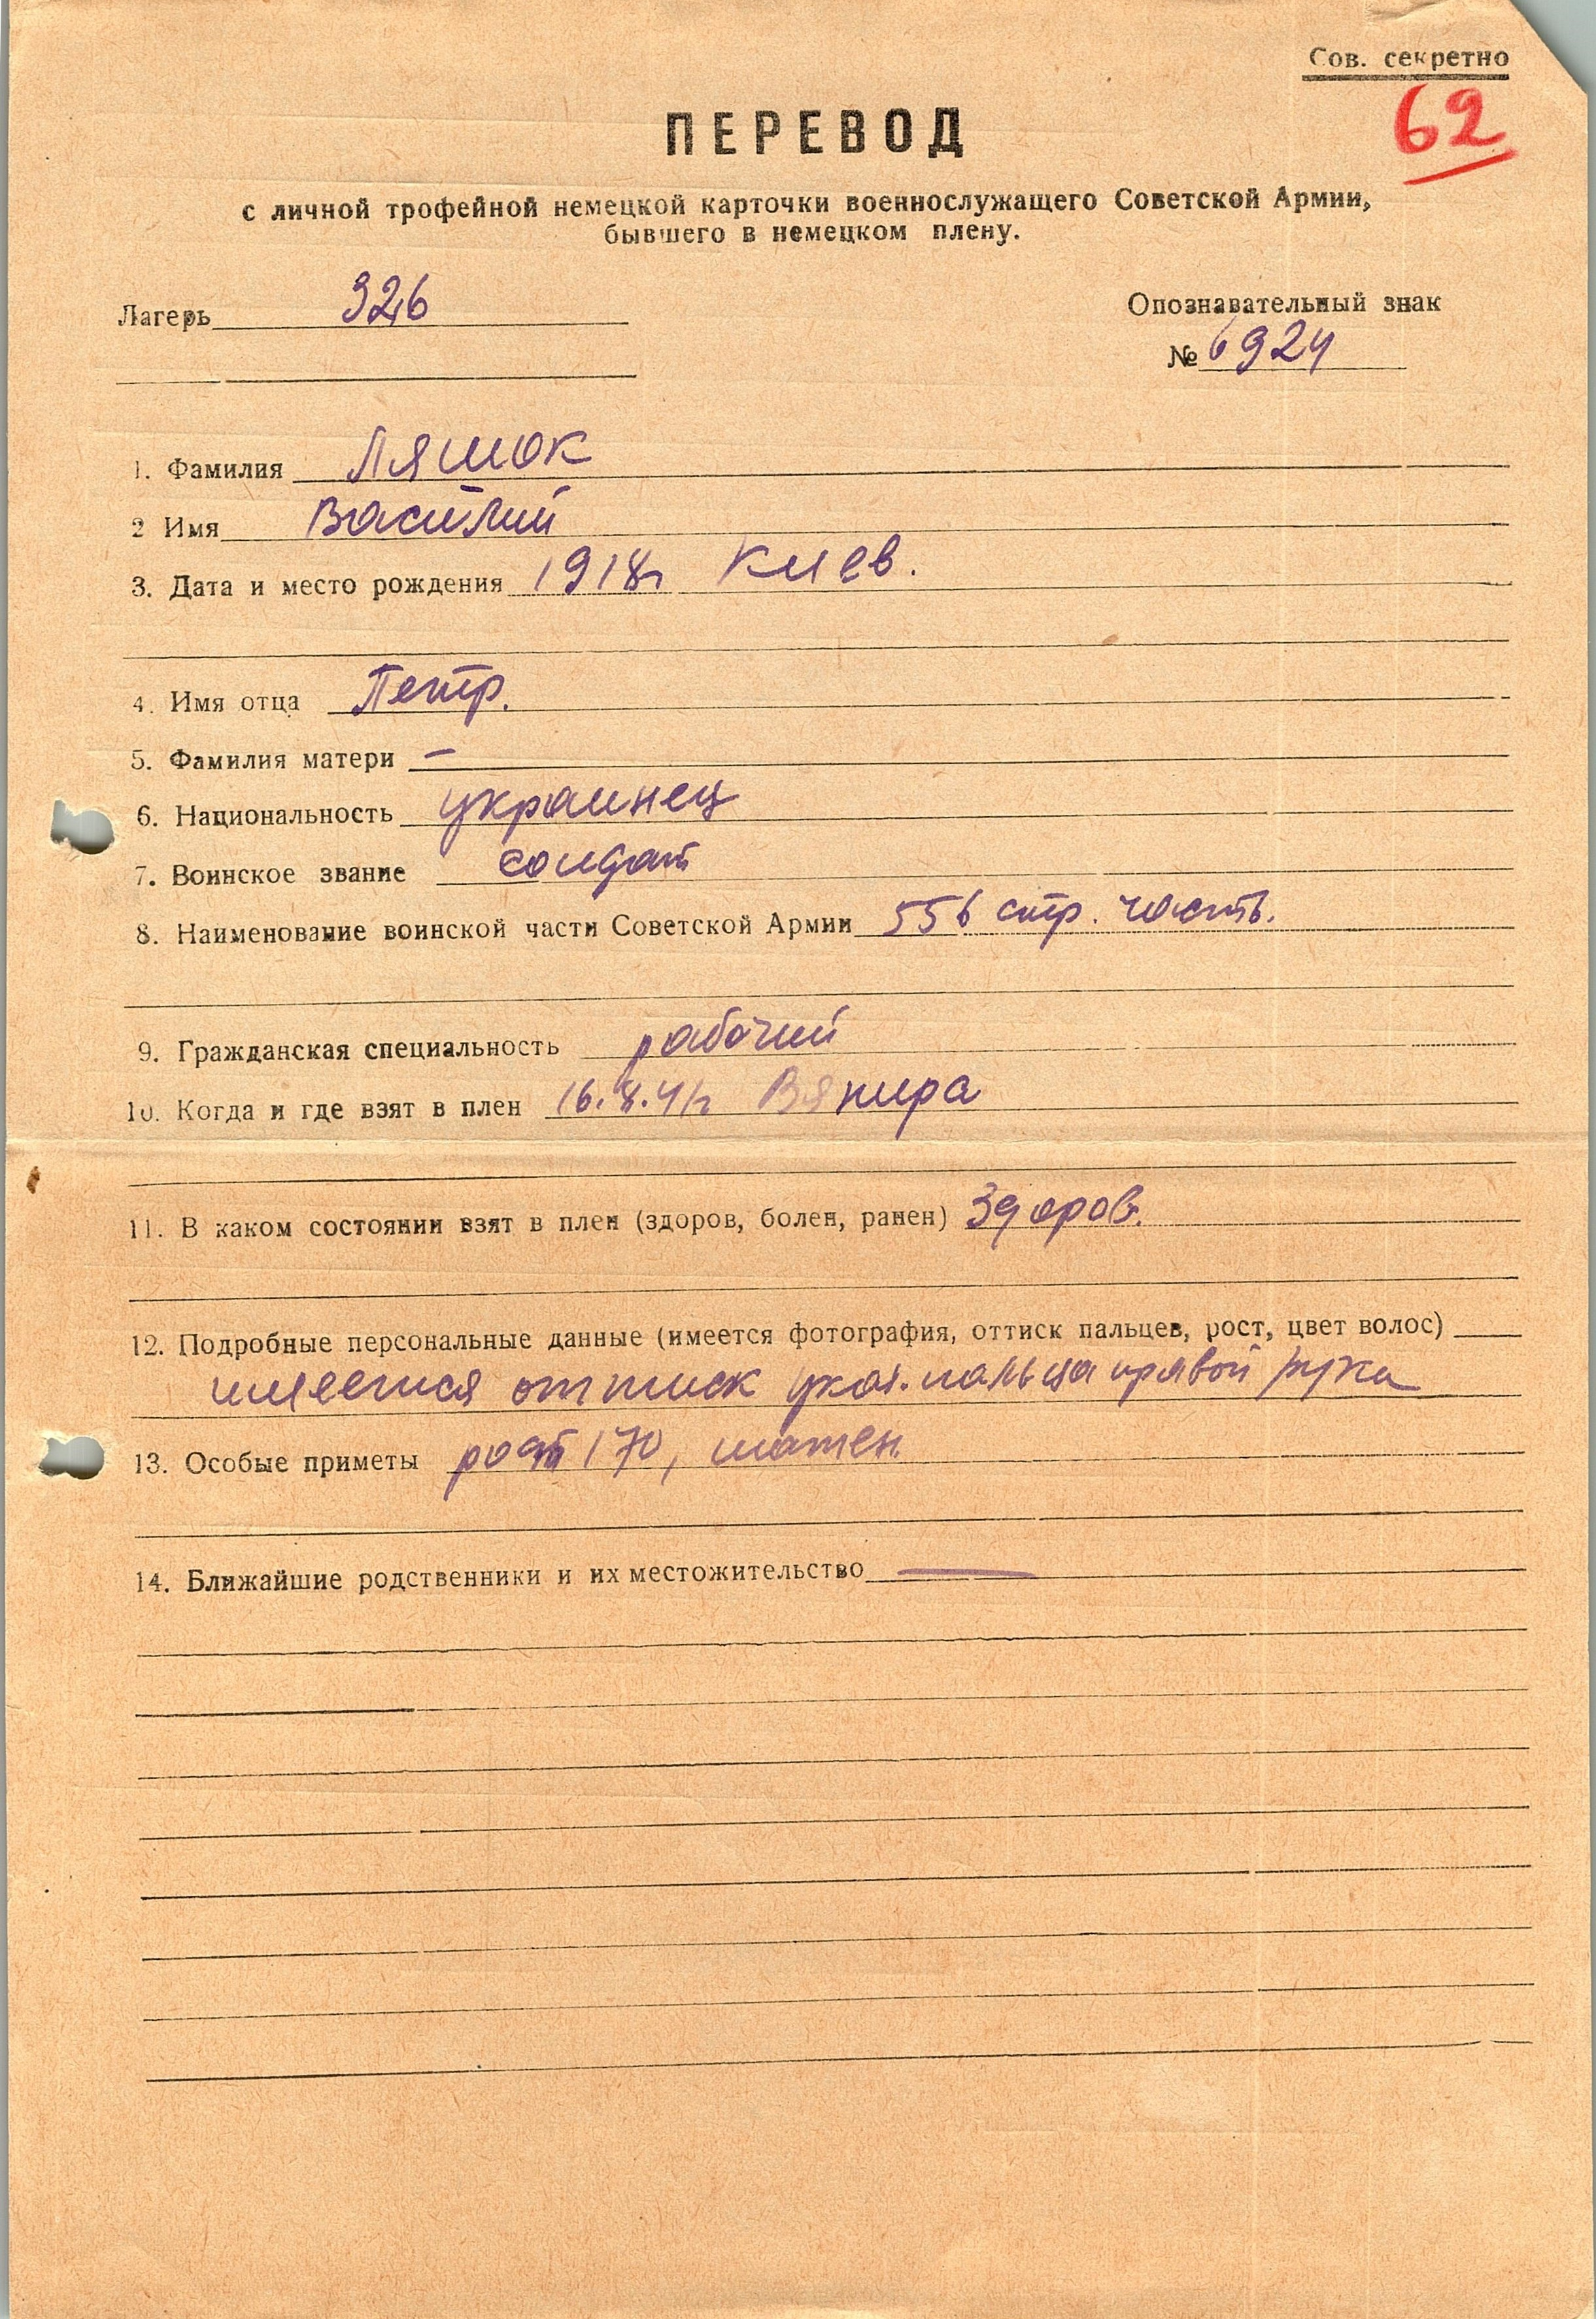 Сов. секретно
62
ПЕРЕВОД
с личной трофейной немецкой карточки военнослужащего Советской Армии,
бывшего в немецком плену.
Лагерь 326
Опознавательный знак
№ 6924
1. Фамилия Ляшок
2 Имя Василий
3. Дата и место рождения 1918г Киев.
4. Имя отца Петр.
5. Фамилия матери —
6. Национальность украинец
7. Воинское звание солдат
8. Наименование воинской части Советской Армии 556 стр. часть.
9. Гражданская специальность рабочий
10. Когда и где взят в плен 16.8.41г Вяпира
11. В каком состоянии взят в плен (здоров, болен, ранен) Здоров.
12. Подробные персональные данные (имеется фотография, оттиск пальцев, рост, цвет волос)
имеется оттиск указ. пальца правой руки
13. Особые приметы рост 170, шатен.
14. Ближайшие родственники и их местожительство —